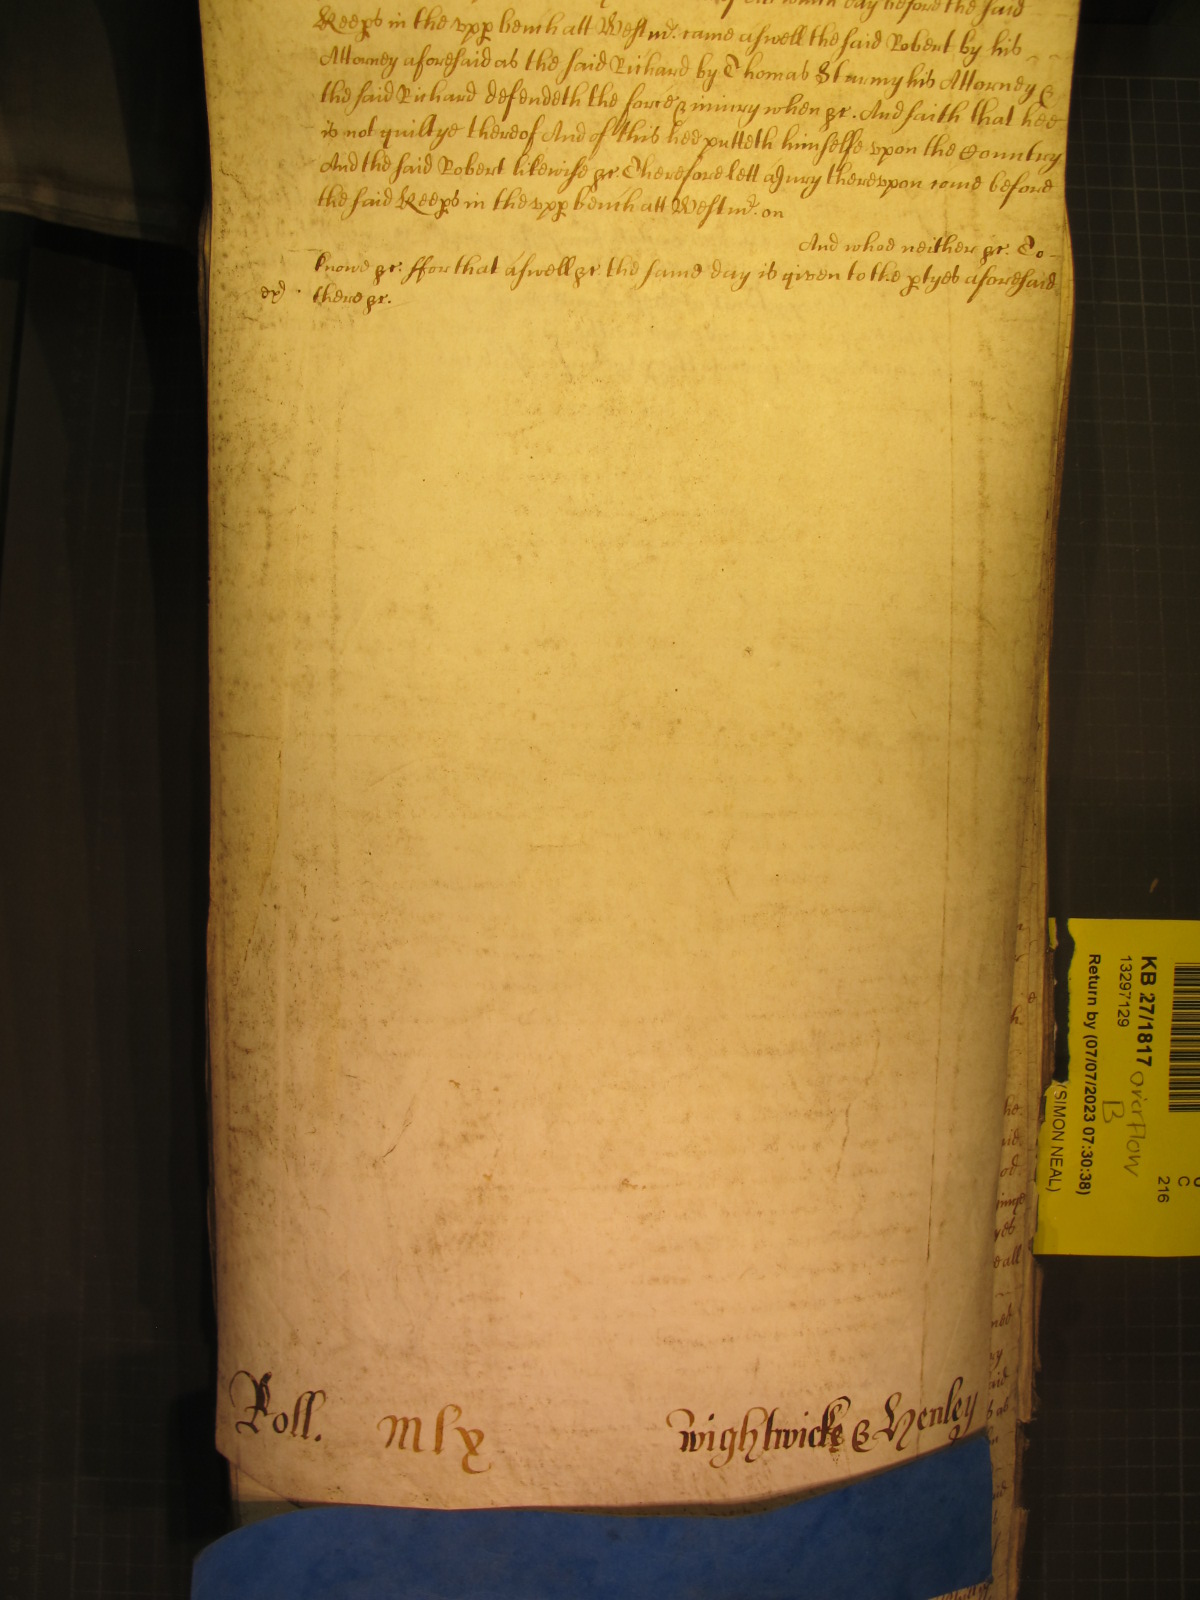 which day before the said
Keeps in the vpp bench att Westmr. came aswell the said Robert by his
Attorney aforesaid as the said Richard by Thomas Sturmy his Attorney &
the said Richard defendeth the force & iniury when &c. And saith that hee
is not guiltye thereof And of this hee putteth himselfe vpon the Country
And the said Robert likewise &c Therefore lett a Jury therevpon come before
the said Keeps in the vpp bench att Westmr. on
And whoe neither &c. To
knowe &c. ffor that aswell &c the same day is given to the ptyes aforesaid
exd. there &c.
Roll. Mlx Wightwicke & Henley
KB 27/1817 overflow
B
13297129
Return by (07/07/2023 07:30:38)
(SIMON NEAL)
216
C